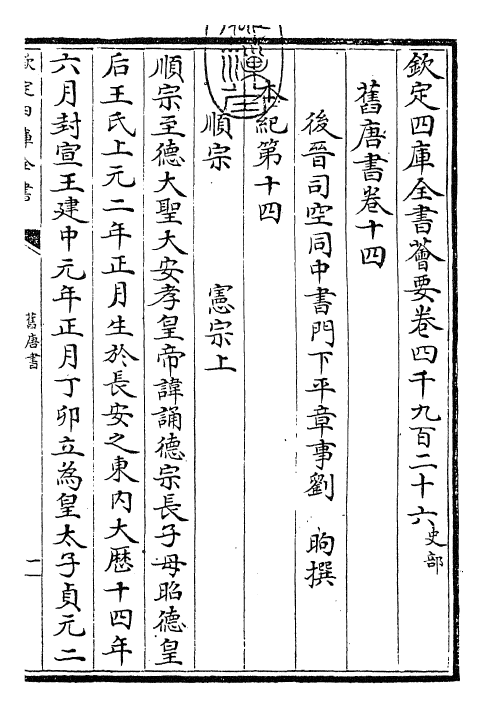 欽定四庫全書薈要卷四千九百二十六史部
舊唐書卷十四
後晉司空同中書門下平章事劉 昫撰
本紀第十四
順宗 憲宗上
順宗至德大聖大安孝皇帝諱誦德宗長子母昭德皇
后王氏上元二年正月生於長安之東內大歷十四年
六月封宣王建中元年正月丁卯立為皇太子貞元二
欽定四庫全書
舊唐書
一